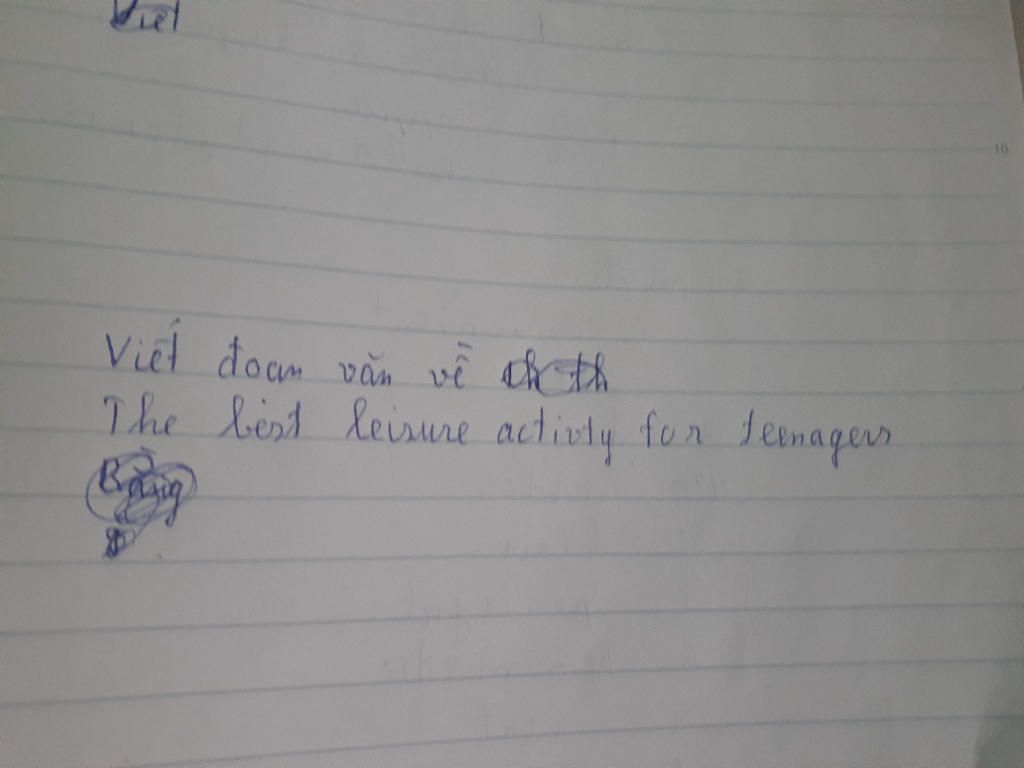 Viết
10
Viết đoan văn về
The best leisure activty for teenagers